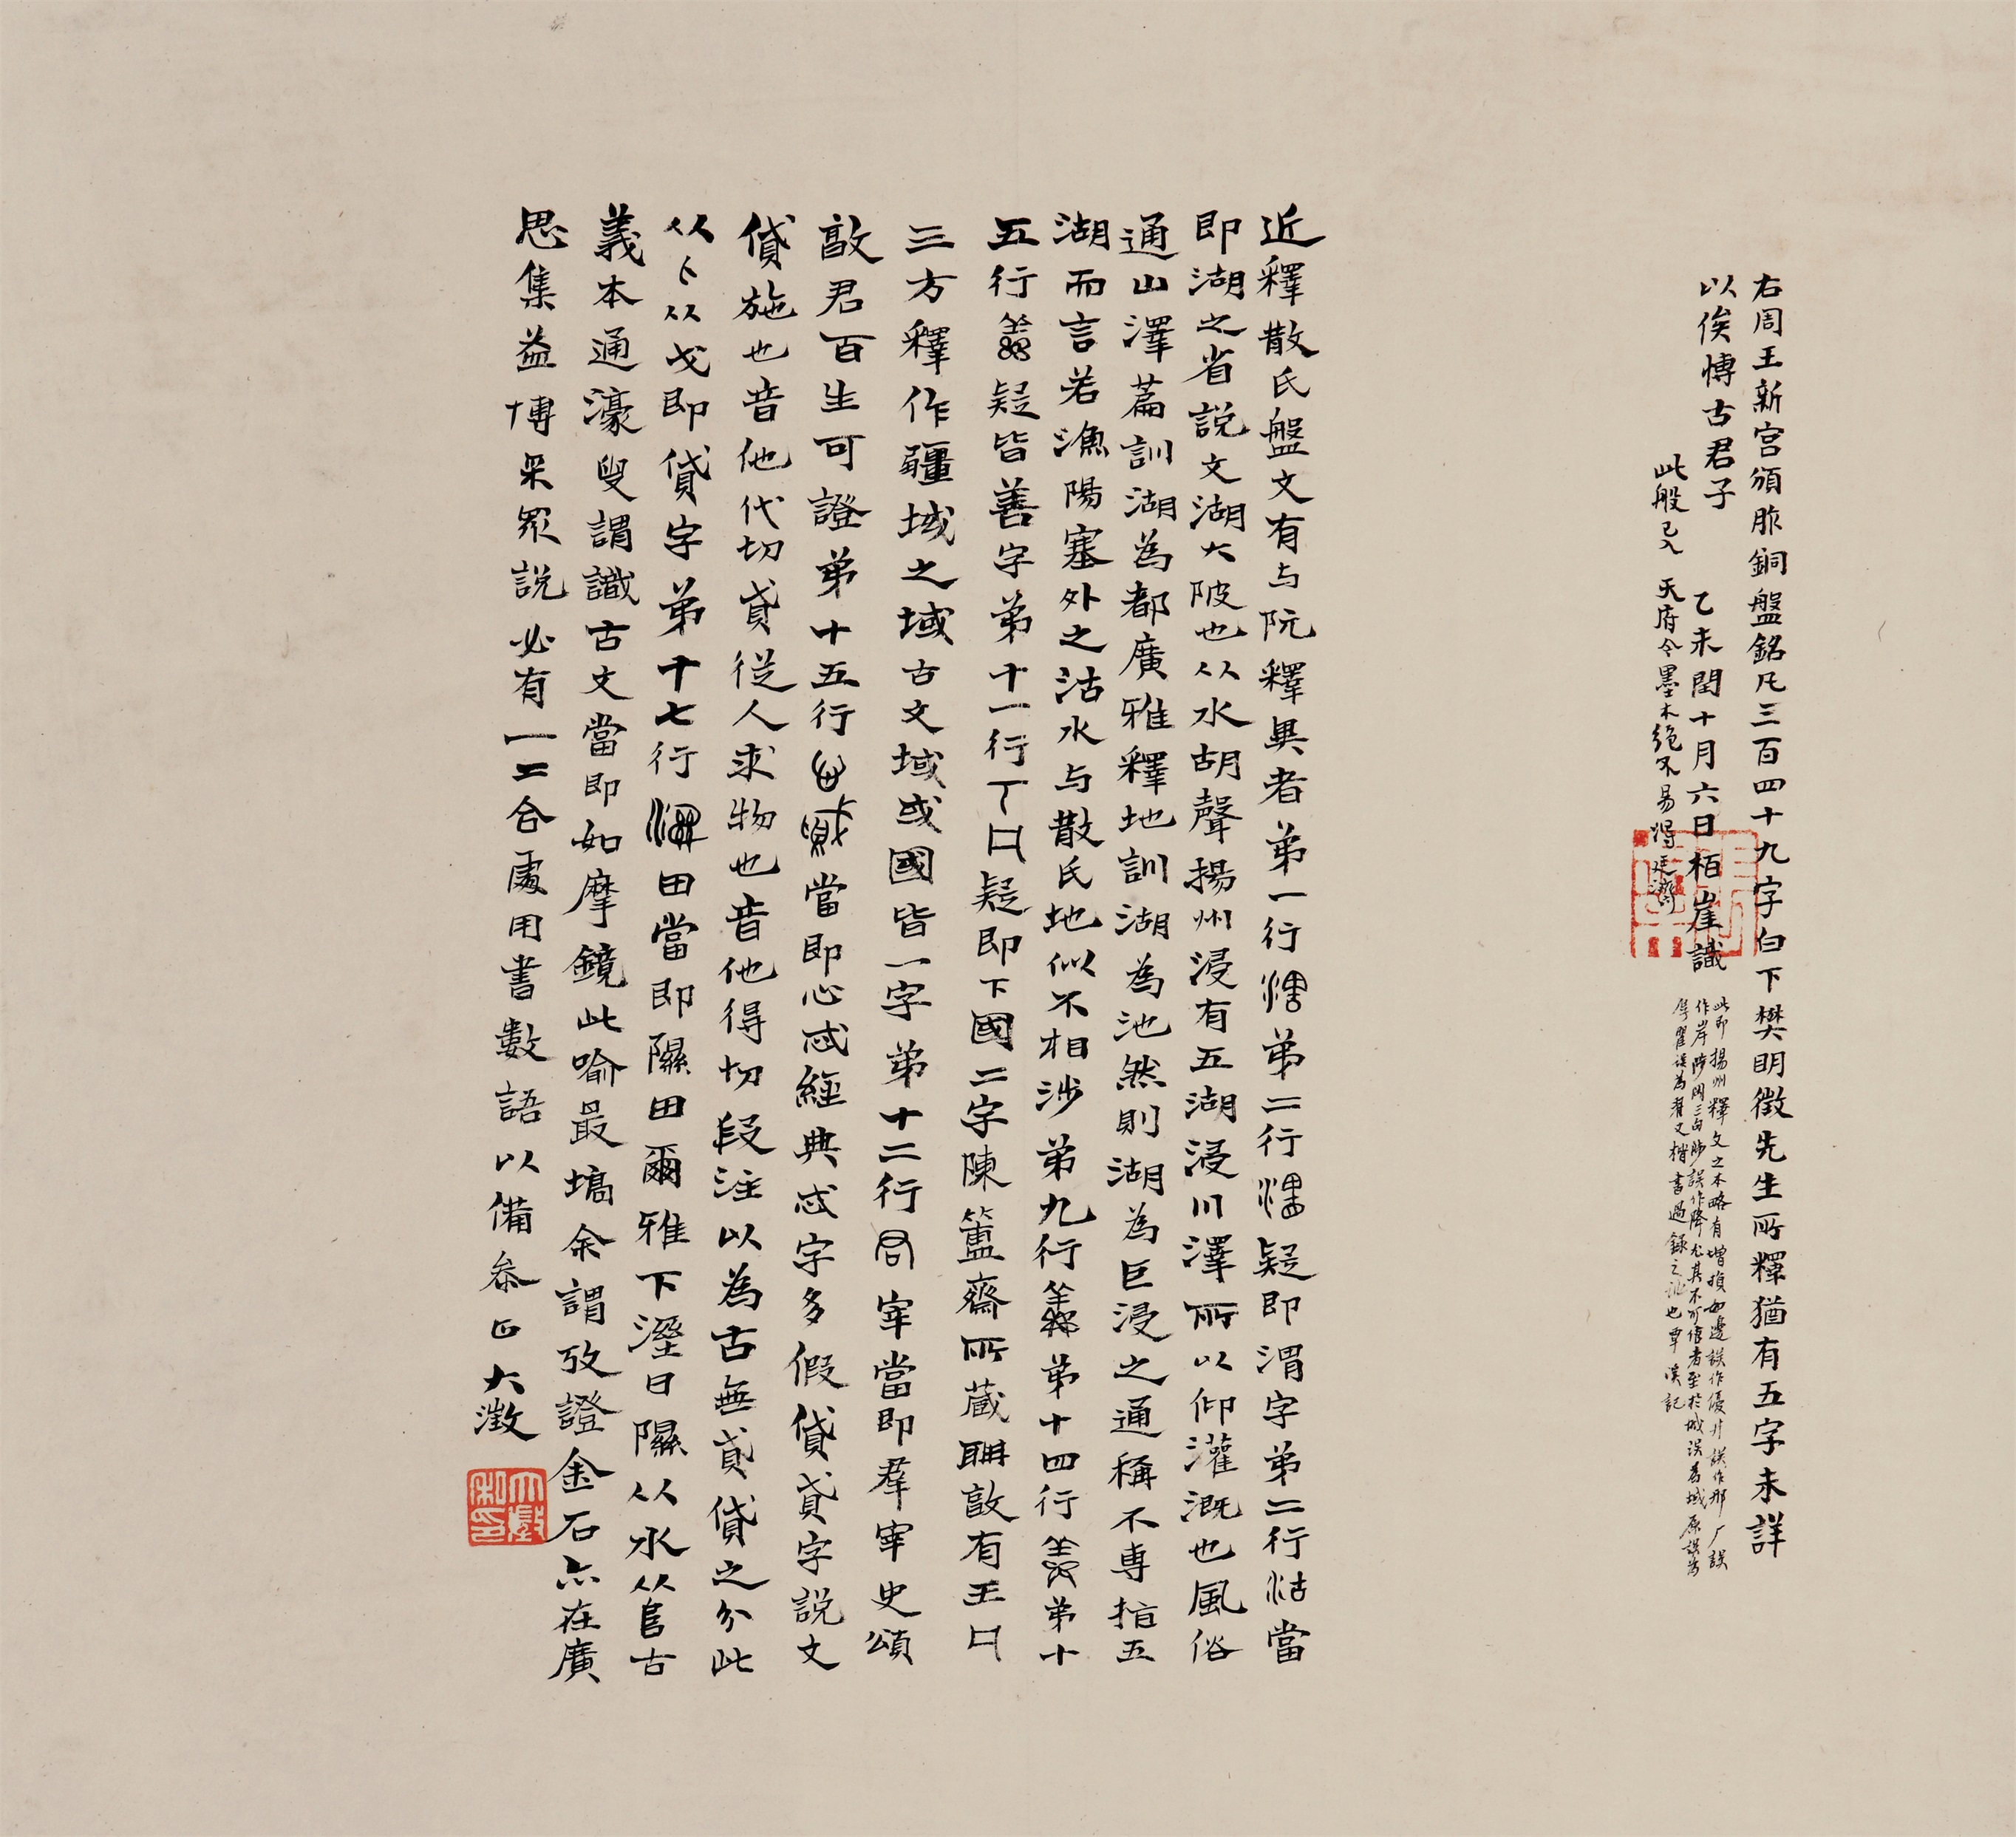 右周王新宮頒胙銅盤銘凡三百四十九字白下樊明徵先生所釋猶有五字未詳
以俟博古君子 乙未閏十月六日栢崖識
此般已入 天府今墨本絕不易得
此即揚州釋文之本略有增損如邊誤作優廾誤作那厂誤
作岸陟岡三句陟誤作降尤其不可信者至於城誤為域原誤為
誤為者又楷書過錄之也覃溪記
近釋散氏盤文有与阮釋異者弟一行弟二行疑即渭字弟二行㳓當
即湖之省說文湖大陂也从水胡聲揚州浸有五湖浸川澤所以仰灌溉也風俗
通山澤篇訓湖為都廣雅釋地訓湖為池然則湖為巨浸之通稱不專指五
湖而言若漁陽塞外之沽水与散氏地似不相涉弟九行弟十四行弟十
五行疑皆善字弟十一行疑即下國二字陳簠齋所藏𦔻敦有王曰
三方釋作疆域之域古文域或國皆一字弟十二行宰當即羣宰史頌
敦君百生可證弟十五行當即心忒經典忒字多假貸貣字說文
貸施也音他代切貣從人求物也音他得切段注以為古無貣貸之分此
从卜从戈即貸字弟十七行田當即隰田爾雅下溼曰隰从水从㠯古
義本通濠叟謂識古文當即如摩鏡此喻最塙余謂攷證金石亦在廣
思集益博采眾說必有一二合處用書數語以備叅正大澂